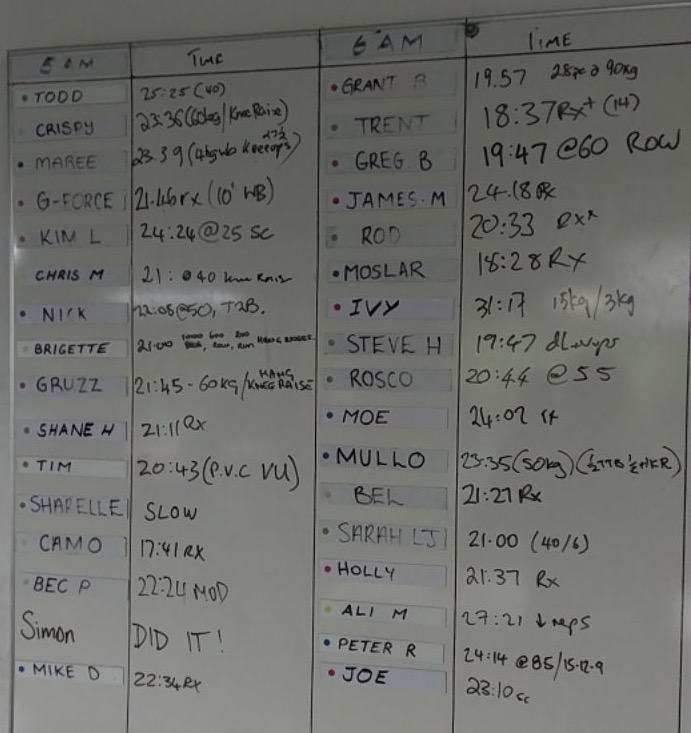 5 AM TIME
TODD 25:25 (40)
CRISPY 23:36 (60kg/Knee Raise)
MAREE 23.39
G-FORCE 21.46 rx (10' WB)
KIM L 24:24 @ 25 SC
CHRIS M 21: @ 40 knee Rais
NICK 22:08 @ 50, T2B.
BRIGETTE 21:00
GRUZZ 21:45 - 60KG / HANG KNEE RAISE
SHANE H 21:11 Rx
TIM 20:43 (P.V.C VU)
SHARELLE SLOW
CAMO 17:41 RX
BEC P 22:24 MOD
Simon DID IT!
MIKE D 22:34 Rx
6 AM TIME
GRANT B 19.57 @ 90kg
TRENT 18:37 Rx+ (14)
GREG B 19:47 @60 ROW
JAMES. M 24.18 Rx
ROD 20:33
MOSLAR 18:28 RX
IVY 31:17 15kg/3kg
STEVE H 19:47
ROSCO 20:44 @ 55
MOE 24:02
MULLO 23:35 (50kg)
BEL 21:27 Rx
SARAH LJ 21:00 (40/6)
HOLLY 21:37 Rx
ALI M 27:21 ↓ reps
PETER R 24:14 @ 85/15-12-9
JOE 23:10 sc